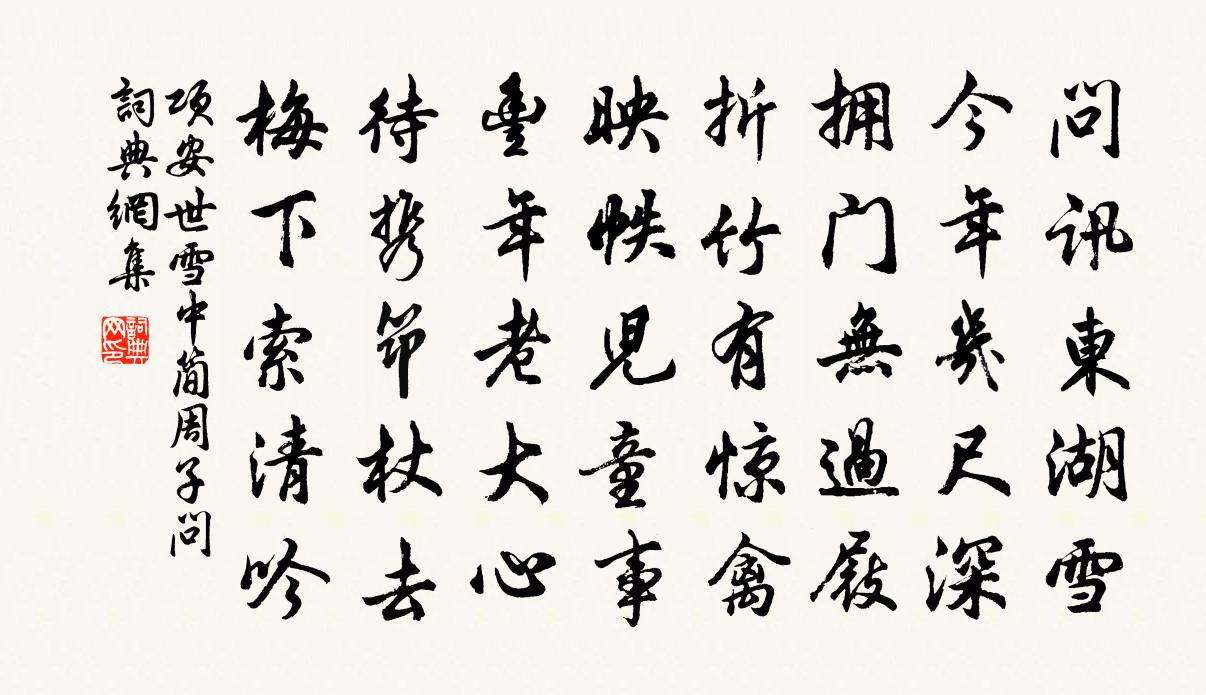 問訊東湖雪
今年幾尺深
拥门無過屐
折竹有惊禽
映帙児童事
豊年老大心
待携筇杖去
梅下索清吟
项安世雪中简周子問
詞典網集
詞典网印